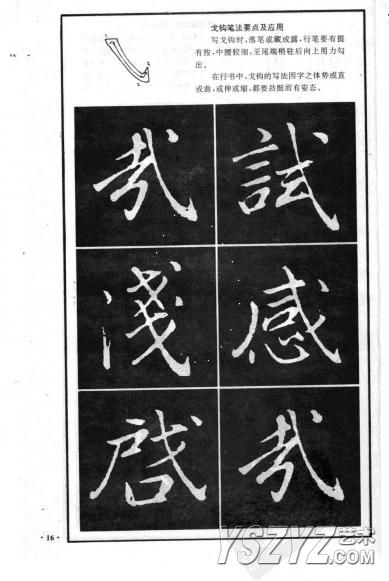 戈钩笔法要点及应用
写戈钩时,落笔或藏或露,行笔要有提
有按,中腰较细,至尾端稍驻后向上用力勾
出。
在行书中、戈钩的写法因字之体势或直
或曲,或伸或缩,都要劲挺而有姿态。
哉 試
淺 感
啟 哉
·16·
YSZYZ艺术
.COM